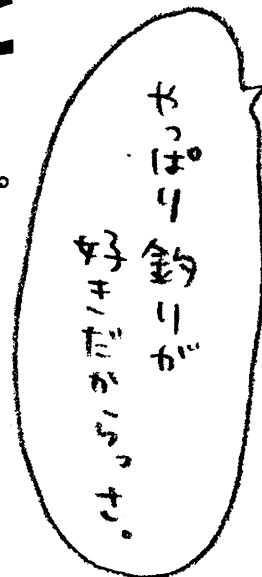 やっぱり釣りが
好きだからっさ。